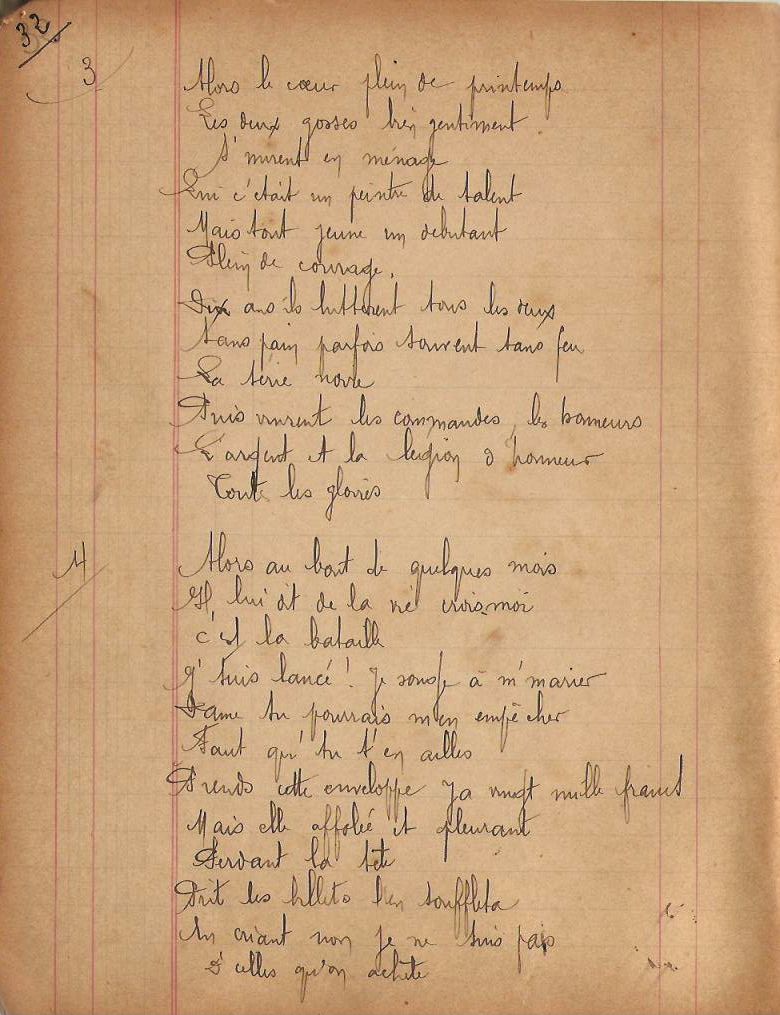 32
3
Alors le cœur plein de printemps
Les deux gosses bien gentiment
S'mirent en ménage
Lui c'était un peintre de talent
Mais tout jeune un debutant
Plein de courage.
Dix ans ils luttèrent tous les deux
Sans pain parfois souvent sans feu
La série noire
Puis vinrent les commandes, les honneurs
L'argent et la legion d'honneur
Toute les gloires
4
Alors au bout de quelques mois
Il lui dit de la vie crois-moi
c'est la bataille
J'suis lancé! Je songe à m'marier
Dame tu pourrais m'en empêcher
Faut qu'tu t'en ailles
Prends cette enveloppe y a vingt mille francs
Mais elle affolée et pleurant
Perdant la tête
Prit les billets l'en souffleta
En criant non je ne suis pas
D'celles qu'on achète